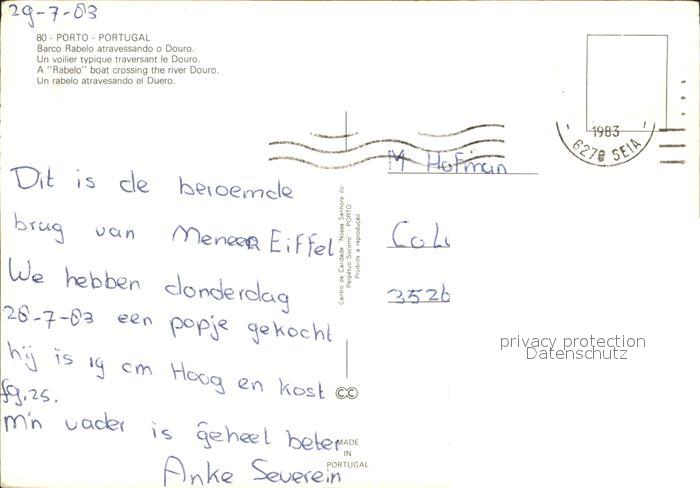 29-7-83
80 - PORTO - PORTUGAL
Barco Rabelo atravessando o Douro.
Un voilier typique traversant le Douro.
A "Rabelo" boat crossing the river Douro.
Un rabelo atravesando el Duero.
1983
6270 SEIA
M Hofman
Dit is de beroemde
brug van Meneer Eiffel
We hebben donderdag
28-7-83 een popje gekocht
hij is 19 cm Hoog en kost
fg.25.
m'n vader is geheel beter
Anke Severein
Centro de Caridade "Nossa Senhora do
Perpétuo Socorro" PORTO
Proibida a reprodução
CC
MADE
IN
PORTUGAL
3526
privacy protection
Datenschutz